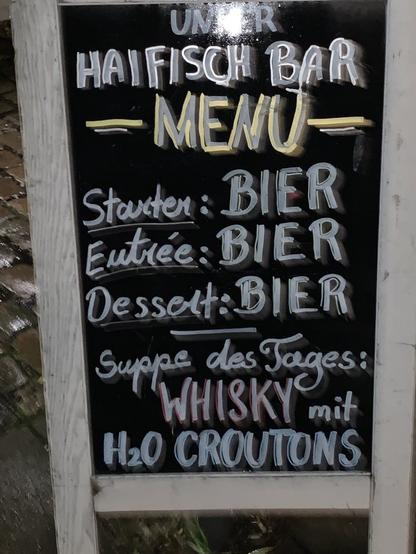 UNSER
HAIFISCH BAR
MENU
Starter: BIER
Entrée: BIER
Dessert: BIER
Suppe des Tages:
WHISKY mit
H₂O CROUTONS